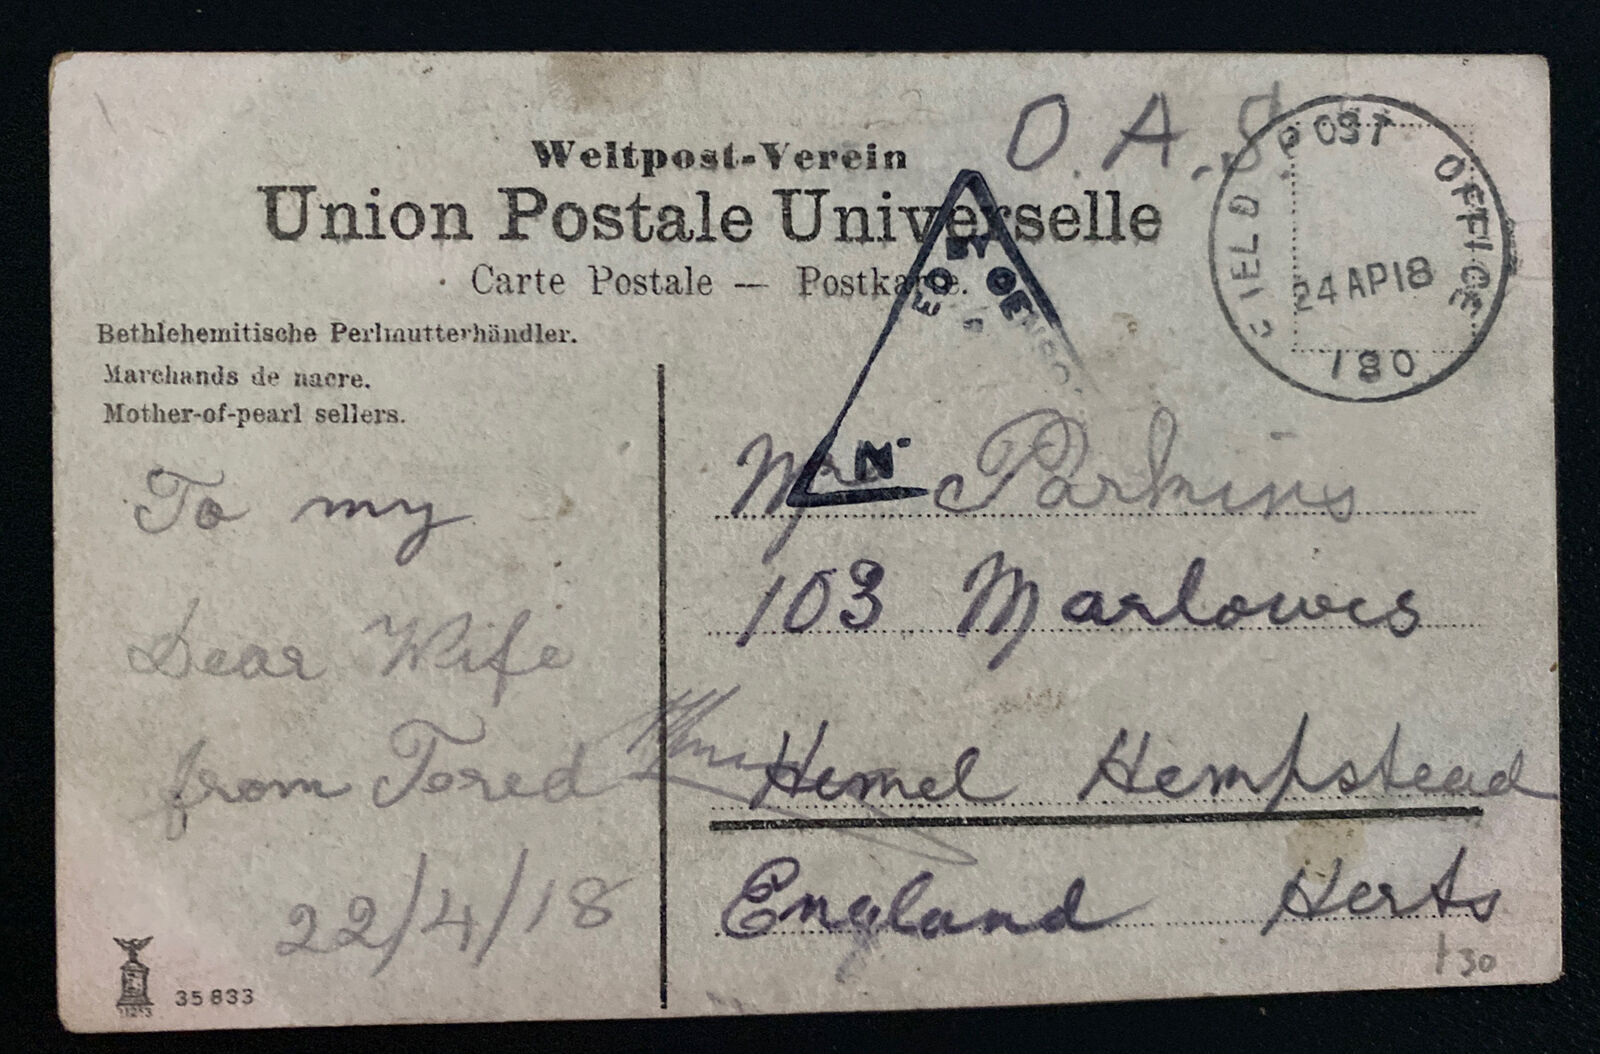 O.A.S.
Weltpost-Verein
Union Postale Universelle
Carte Postale — Postkarte.
FIELD POST OFFICE
24 AP 18
180
ED BY CENSO
No.
Bethlehemitische Perlmutterhändler.
Marchands de nacre.
Mother-of-pearl sellers.
To my
Dear Wife
from Tored
22/4/18
Mrs Parkins
103 Marlowes
Hemel Hempstead
England Herts
130
35833